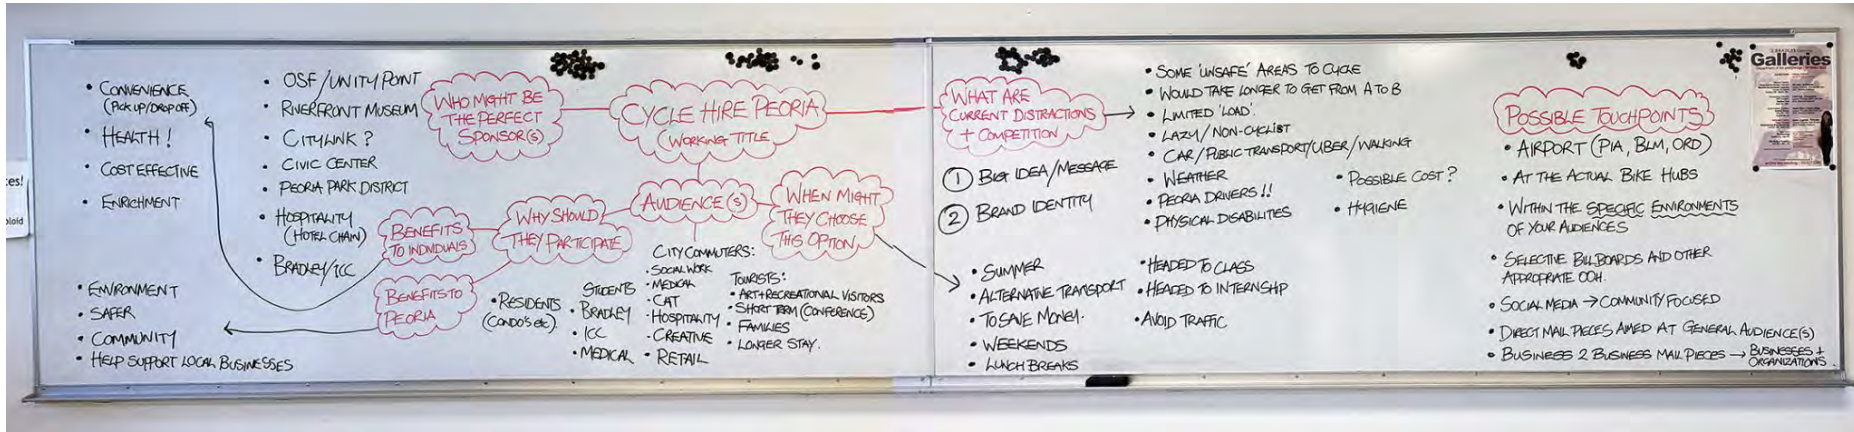 ces!
oloid
• CONVENIENCE
(PICK UP/DROP OFF)
• HEALTH!
• COST EFFECTIVE
• ENRICHMENT
• OSF/UNITYPOINT
• RIVERFRONT MUSEUM
• CITYLINK?
• CIVIC CENTER
• PEORIA PARK DISTRICT
• HOSPITALITY
(HOTEL CHAIN)
• BRADLEY/ICC
WHO MIGHT BE
THE PERFECT
SPONSOR(S)
CYCLE HIRE PEORIA
(WORKING TITLE)
AUDIENCE(S)
WHY SHOULD
THEY PARTICIPATE
BENEFITS
TO INDIVIDUALS
BENEFITS TO
PEORIA
WHEN MIGHT
THEY CHOOSE
THIS OPTION
• ENVIRONMENT
• SAFER
• COMMUNITY
• HELP SUPPORT LOCAL BUSINESSES
• RESIDENTS
(CONDO'S etc)
STUDENTS
• BRADLEY
• ICC
• MEDICAL
CITY COMMUTERS:
• SOCIAL WORK
• MEDICAL
• CAT
• HOSPITALITY
• CREATIVE
• RETAIL
TOURISTS:
• ART+RECREATIONAL VISITORS
• SHORT TERM (CONFERENCE)
• FAMILIES
• LONGER STAY.
WHAT ARE
CURRENT DISTRACTIONS
+ COMPETITION
① BIG IDEA/MESSAGE
② BRAND IDENTITY
• SOME 'UNSAFE' AREAS TO CYCLE
• WOULD TAKE LONGER TO GET FROM A TO B
• LIMITED 'LOAD'.
• LAZY/NON-CYCLIST
• CAR/PUBLIC TRANSPORT/UBER/WALKING
• WEATHER
• PEORIA DRIVERS!!
• PHYSICAL DISABILITIES
• POSSIBLE COST?
• HYGIENE
• SUMMER
• ALTERNATIVE TRANSPORT
• TO SAVE MONEY.
• WEEKENDS
• LUNCH BREAKS
• HEADED TO CLASS
• HEADED TO INTERNSHIP
• AVOID TRAFFIC
POSSIBLE TOUCHPOINTS
• AIRPORT (PIA, BLM, ORD)
• AT THE ACTUAL BIKE HUBS
• WITHIN THE SPECIFIC ENVIRONMENTS
OF YOUR AUDIENCES
• SELECTIVE BILLBOARDS AND OTHER
APPROPRIATE OOH.
• SOCIAL MEDIA → COMMUNITY FOCUSED
• DIRECT MAIL PIECES AIMED AT GENERAL AUDIENCE(S)
• BUSINESS 2 BUSINESS MAIL PIECES → BUSINESSES +
ORGANIZATIONS.
Galleries